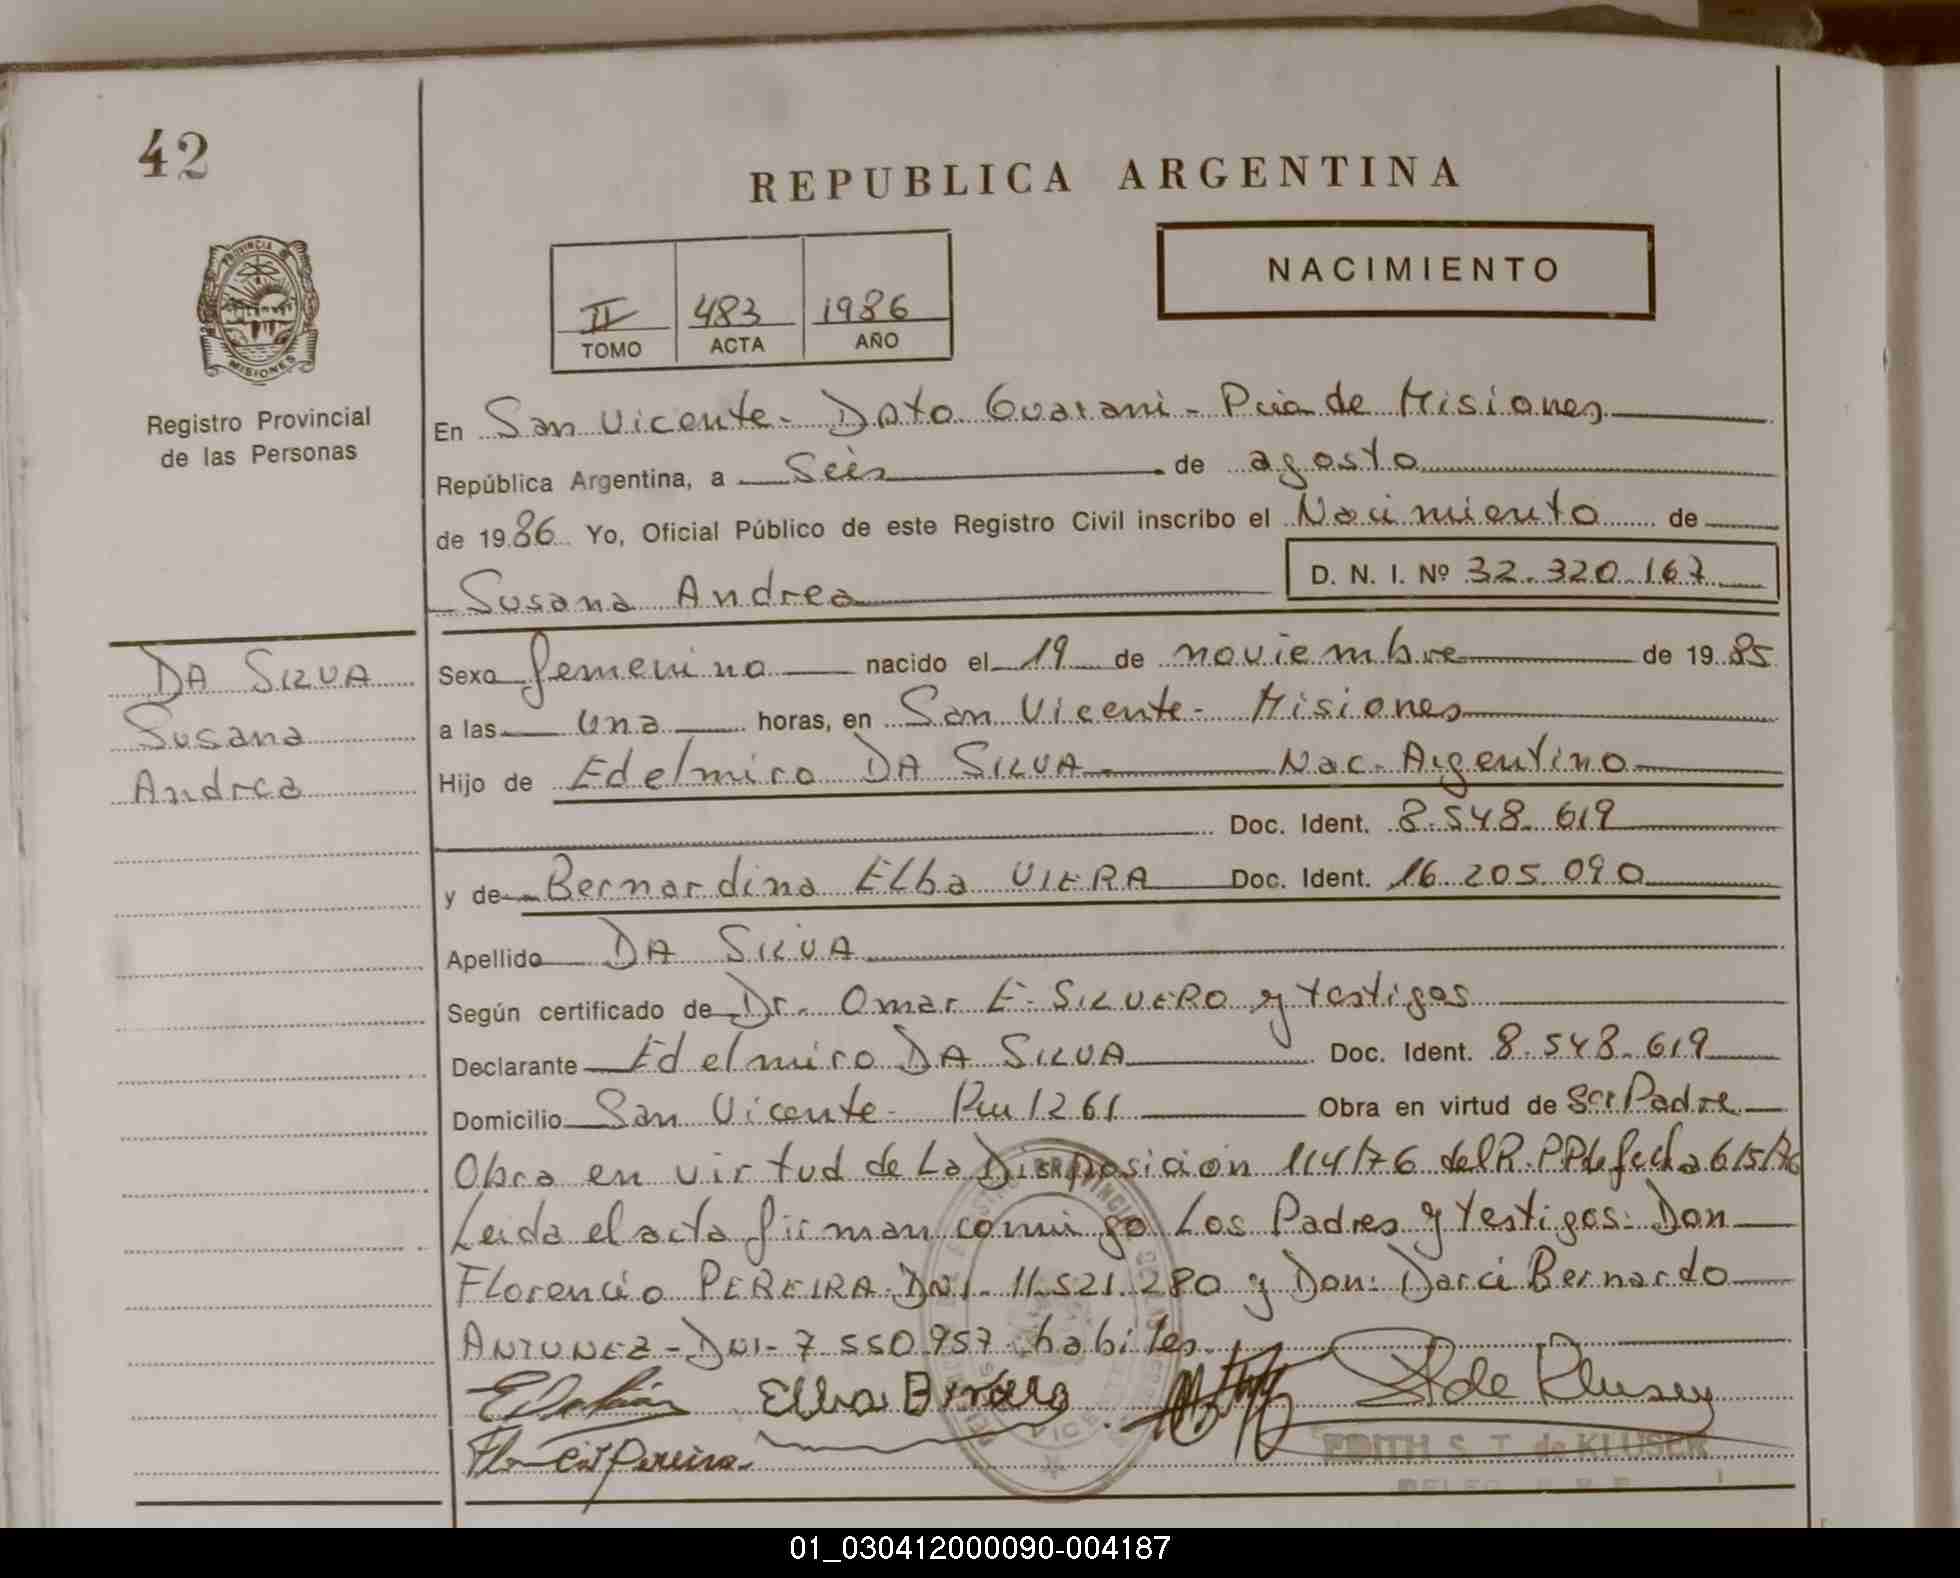 42
REPUBLICA ARGENTINA
PROVINCIA DE
MISIONES
Registro Provincial
de las Personas
II 483 1986
TOMO ACTA AÑO
NACIMIENTO
En San Vicente - Dpto Guarani - Pcia de Misiones
República Argentina, a Seis de agosto
de 1986 Yo, Oficial Público de este Registro Civil inscribo el Nacimiento de
Susana Andrea D. N. I. Nº 32.320.167
DA SILVA
Susana
Andrea
Sexo femenino nacido el 19 de noviembre de 1985
a las una horas, en San Vicente - Misiones
Hijo de Edelmiro DA SILVA Nac. Argentino
Doc. Ident. 8.548.619
y de Bernardina Elba VIERA Doc. Ident. 16.205.090
Apellido DA SILVA
Según certificado de Dr. Omar E. SILVERO y testigos
Declarante Edelmiro DA SILVA Doc. Ident. 8.548.619
Domicilio San Vicente - Km 1261 Obra en virtud de ser Padre
Obra en virtud de La Disposición 114/76 del R.P.P de fecha 6/5/76
Leida el acta firman comigo Los Padres y testigos: Don
Florencio PEREIRA DNI. 11.521.280 y Don: Darci Bernardo
ANTUNEZ - DNI - 7.550.957 - habiles.
Elba
de Kluser
Pereira
EDITH S. T. de KLUSER
01_030412000090-004187